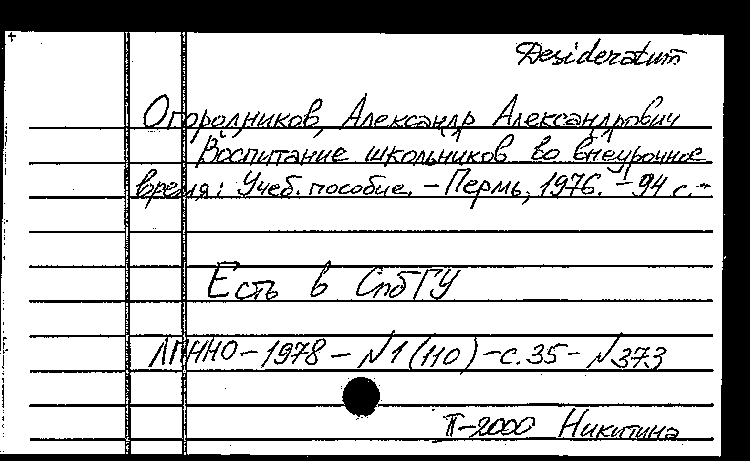 Desideratum
Огородников, Александр Александрович
Воспитание школьников во внеурочное
время: Учеб. пособие. – Пермь, 1976. – 94 с. –
Есть в СпбГУ
ЛПННО – 1978 – N1 (110) – с. 35 – N373
II-2000 Никитина